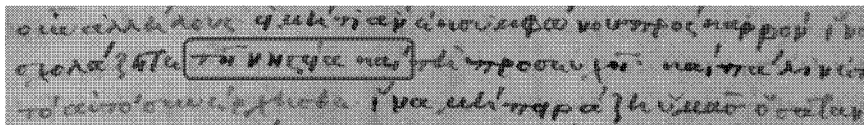 ἀλλήλους εἰ μήτι ἂν ἐκ συμφώνου πρὸς καιρὸν ἵνα
σχολάζητε τῆ νηστεία καὶ τῆ προσευχῆ καὶ πάλιν ἐπὶ
τὸ αὐτὸ συνέρχησθε ἵνα μὴ πειράζη ὑμᾶς ὁ σαταν